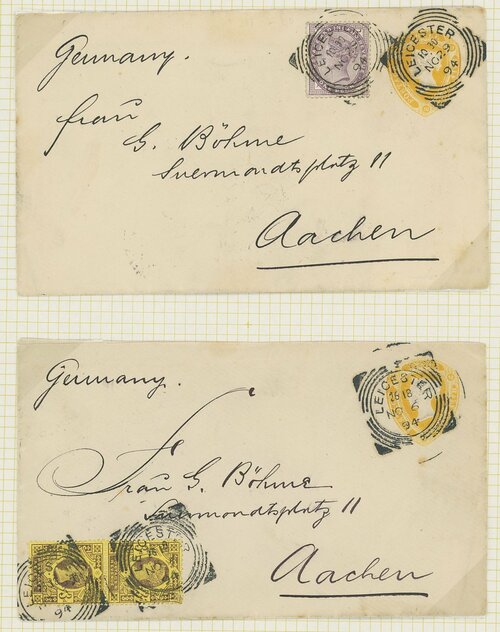 Germany.
LEICESTER
94
LEICESTER
10 30
NO 29
94
frau
G. Böhme
Suermondtsplatz 11
Aachen
Germany.
LEICESTER
NO 6
94
Frau G. Böhme
Suermondtsplatz 11
Aachen
LEICESTER
94